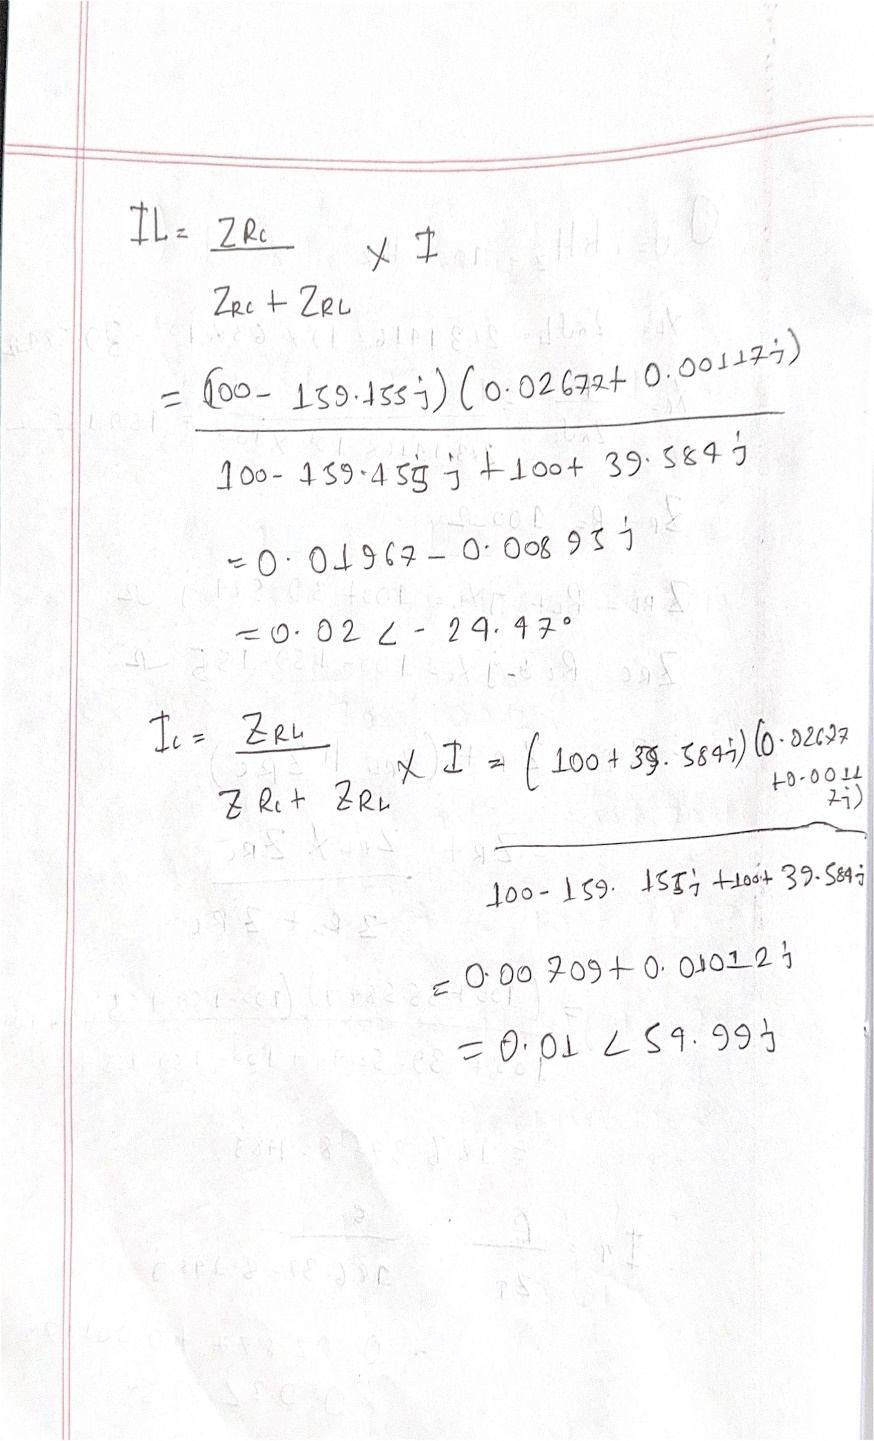 IL = ZRc / ZRc + ZRL × I
= (100 - 159.155j) (0.02672 + 0.00117j) / 100 - 159.155j + 100 + 39.584j
= 0.01967 - 0.00893j
= 0.02 ∠ - 24.47°
Ic = ZRL / ZRc + ZRL × I = (100 + 39.584j) (0.02677 + 0.00117j) / 100 - 159.155j + 100 + 39.584j
= 0.00709 + 0.01012j
= 0.01 ∠ 54.99j